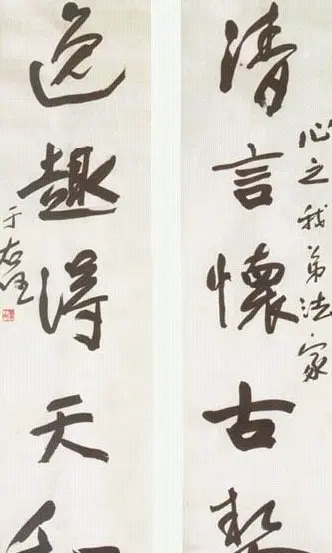 清言懷古
心之我弟法家
逸趣得天
于右任